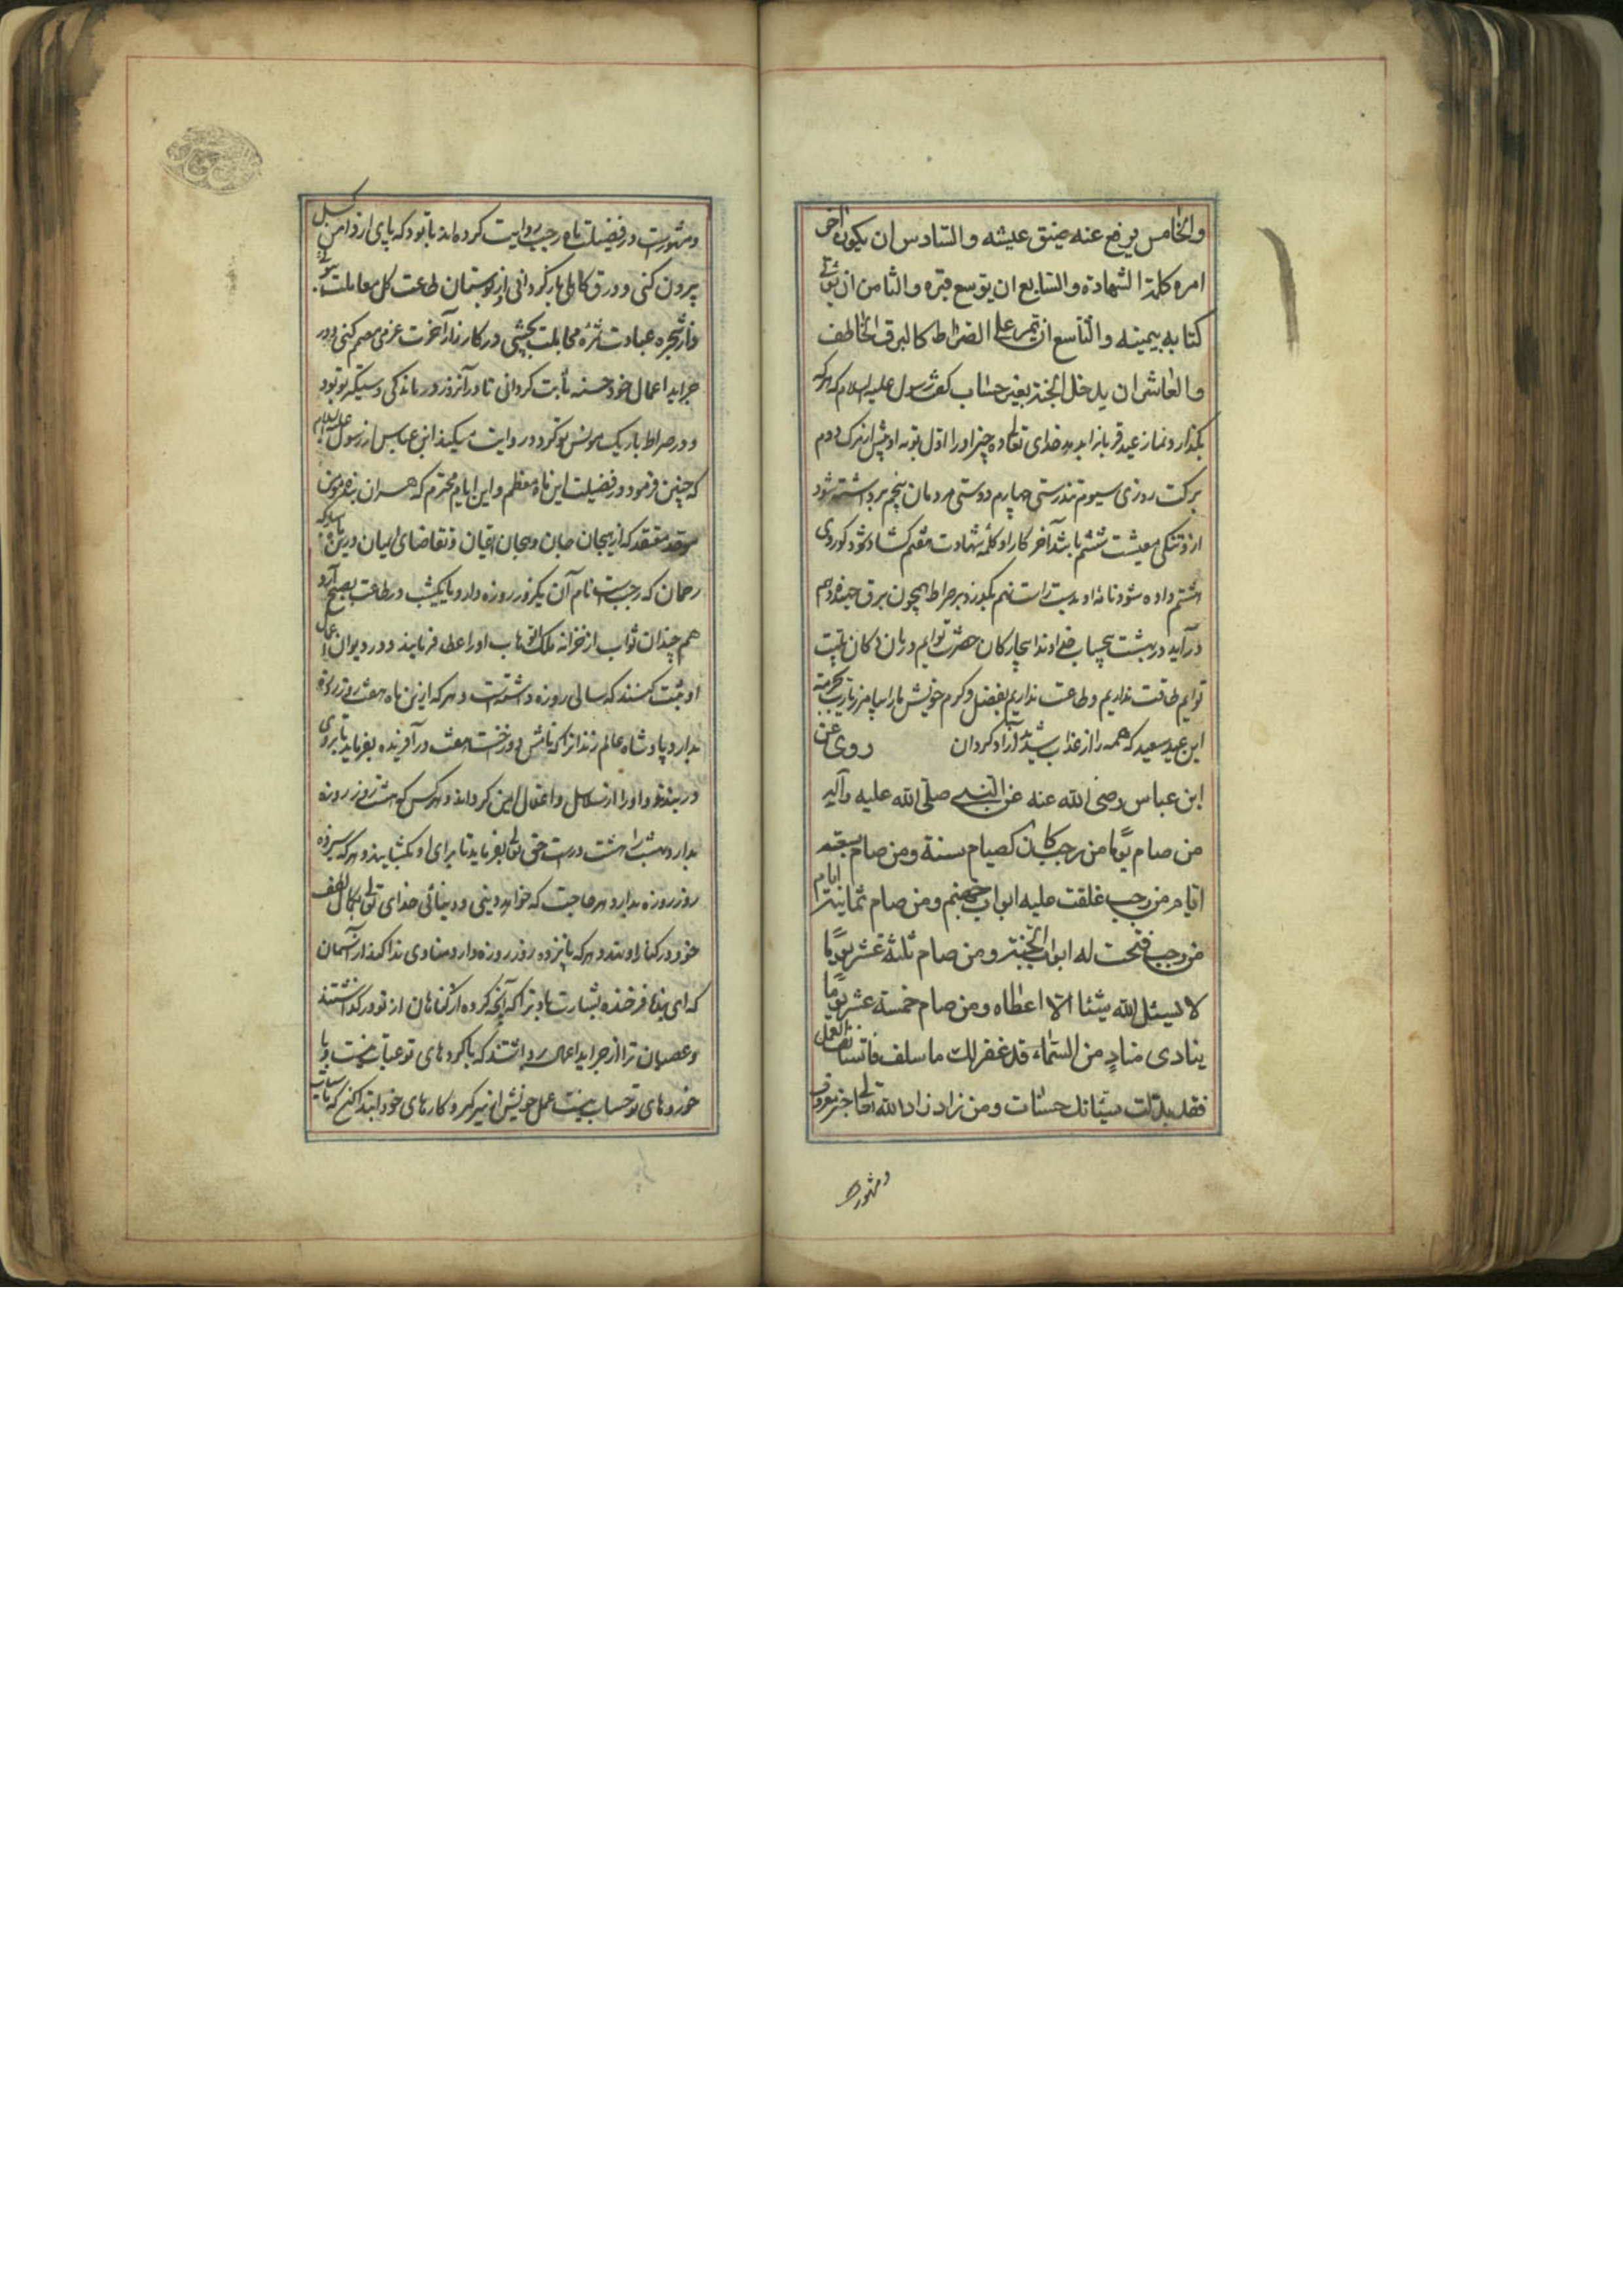 والخامس يرفع عنه ضيق عيشه والسادس ان يكون آخر
امره كلمة الشهادة والسابع ان يوسع قبره والثامن ان يؤتى
كتابه بيمينه والتاسع ان يمر على الصراط كالبرق الخاطف
والعاشر ان يدخل الجنة بغير حساب گفت رسول عليه السلام که هر که
بگذارد نماز عید قربانرا بدهد خدای تعالی ده چیز او را اول توبه او پیش از مرگ دوم
برکت روزی سیوم تندرستی چهارم دوستی مردمان پنجم برداشته شود
ازو تنگی معیشت ششم باشد آخر کار او کلمه شهادت هفتم گشاد شود گور وی
هشتم داده شود نامه او بدست راست نهم بگذرد بر صراط همچون برق جهنده دهم
درآید در بهشت بیحساب خداوندا بیچارگان حضرت توایم
توایم طاقت نداریم و طاعت نداریم بفضل و کرم خویش ما را بیامرز یا رب بحرمة
این عید سعید که همه را از عذاب شدید آزاد گردان روى عن
ابن عباس رضى الله عنه عن النبي صلى الله عليه وآله
من صام يوما من رجب كان كصيام سنة ومن صام سبعة
ايام من رجب غلقت عليه ابواب جهنم ومن صام ثمانية ايام
من رجب فتحت له ابواب الجنة ومن صام ثلثة عشر يوما
لا يسئل الله شيئا الا اعطاه ومن صام خمسة عشر يوما
ينادى مناد من السماء قد غفر لك ما سلف فاستانف العمل
فقد بدلت سيئاتك حسنات ومن زاد زاد الله تعالى
ومشهورست
ومشهورست در فضیلت ماه رجب روایت کرده‌اند تا بود که پای از دامن کسل
بیرون کنی و ورق کاهلی بازگردانی و از بوستان طاعت گل معاملت
و از شجره عبادت ثمره بچشی و در کارزار آخرت عزمی مصمم کنی و در
جراید اعمال خود حسنه ثابت گردانی تا در آنروز درماندگی دستگیر تو بود
و در صراط باریک مونس تو گردد روایت میکند ابن عباس از رسول علیه السلام
که چنین فرمود در فضیلت این ماه معظم و این ایام محترم که هر آن بنده مومن
موحد معتقد که از و تقاضای ایمان درین ماه مبارکه
رحمان که رجب است نام آن یکروز روزه دارد و یا یکشب در طاعت بصبح آرد
هم چندان ثواب از خزانه ملک الوهاب او را عطا فرمایند و در دیوان اعمال
او ثبت کنند که سالی روزه داشته است و هر که ازین ماه هفت روز روزه
بدارد پادشاه عالم در آفریننده بفرماید تا بروی
دربندند و او را از سلاسل و اغلال ایمن گردانند و هر کس که هشت روز روزه
بدارد بهشت را هشت درست حق تعالی بفرماید تا برای او بگشایند و هر که سیزده
روز روزه بدارد هر حاجت که خواهد دینی و دنیائی خدای تعالی بکمال لطف
خود در کنار او نهد و هر که پانزده روز روزه دارد منادی ندا کند از آسمان
که ای بنده فرخنده بشارت باد ترا که آنچه کرده از گناهان از تو درگذاشتند
و عصیان ترا از جراید اعمال برداشتند که با کردهای تو عتاب نیست و با
خوردهای تو حساب نیست عمل خویش از سر گیر و کارهای خود ابتدا کن که